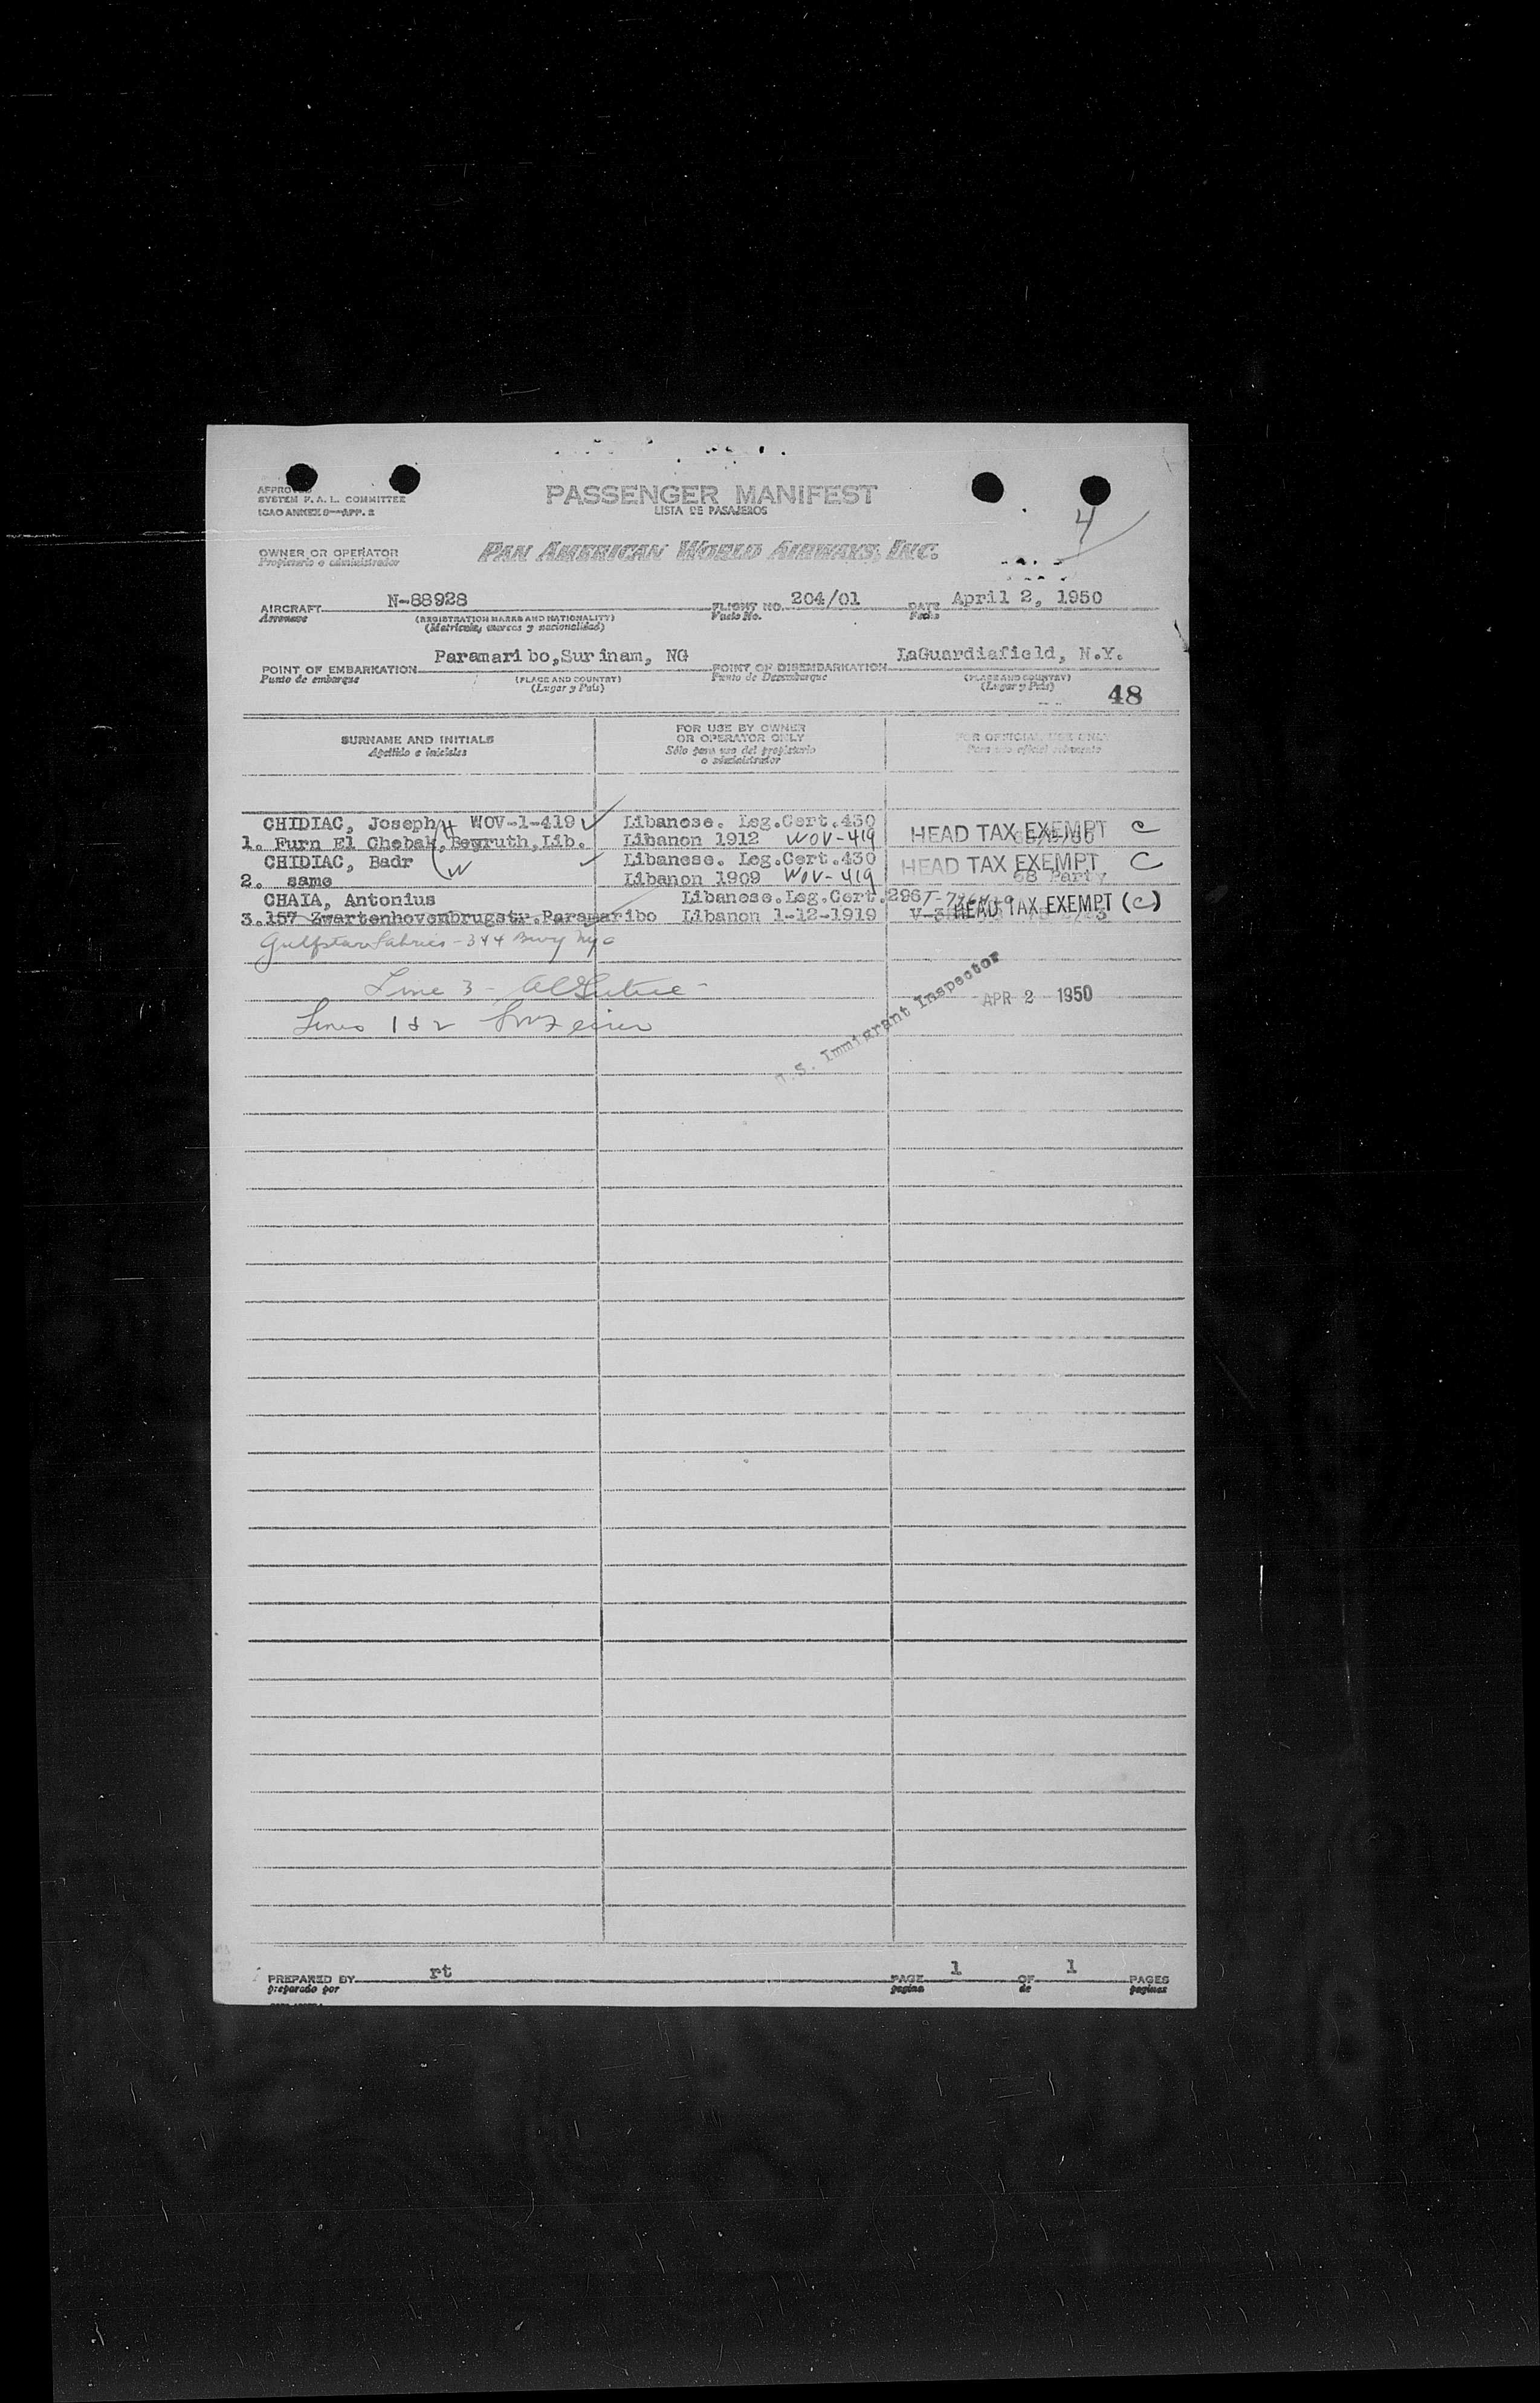 APPRO
SYSTEM F. A. L. COMMITTEE
ICAO ANNEX 9—APP. 2
PASSENGER MANIFEST
LISTA DE PASAJEROS
4
OWNER OR OPERATOR
Propietario o administrador
PAN AMERICAN WORLD AIRWAYS, INC.
AIRCRAFT N-88928 FLIGHT NO. 204/01 DATE April 2, 1950
Aeronave (REGISTRATION MARKS AND NATIONALITY) Vuelo No. Fecha
(Matrícula, marcas y nacionalidad)
POINT OF EMBARKATION Paramaribo,Surinam, NG POINT OF DISEMBARKATION LaGuardiafield, N.Y.
Punto de embarque (PLACE AND COUNTRY) Punto de Desembarque (PLACE AND COUNTRY)
(Lugar y País) (Lugar y País)
48
SURNAME AND INITIALS
Apellido e iniciales
FOR USE BY OWNER
OR OPERATOR ONLY
Sólo para uso del propietario
o administrador
FOR OFFICIAL USE ONLY
Para uso oficial solamente
CHIDIAC, Joseph H WOV-1-419 Libanese. Leg.Cert.430
1. Furn El Chebak,Beyruth,Lib. Libanon 1912 WOV-419 HEAD TAX EXEMPT C
CHIDIAC, Badr W Libanese. Leg.Cert.430 HEAD TAX EXEMPT C
2. same Libanon 1909 WOV-419 6B Party
CHAIA, Antonius Libanese.Leg.Cert.296
3.157 Zwartenhovenbrugstr.Paramaribo Libanon 1-12-1919 HEAD TAX EXEMPT (C)
344 Bwy Nyc
Line 3 -
Lines 1 & 2
Immigrant Inspector
APR 2 1950
PREPARED BY rt PAGE 1 OF 1 PAGES
preparado por pagina de paginas